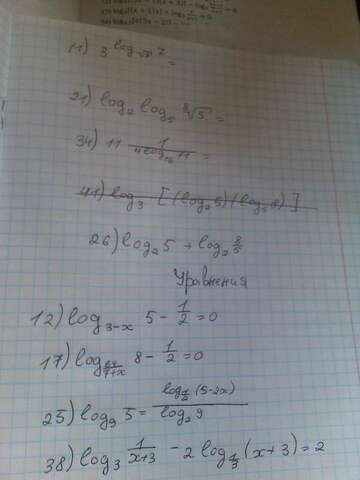 11) 3^{log_{√3} 7} =
21) log_2 log_5 \sqrt[8]{5} =
34) 11^{\frac{1}{4 log_{16} 11}} =
41) log_3 [(log_2 5)(log_5 8)]
26) log_2 5 + log_2 \frac{8}{5}
Уравнения
12) log_{3-x} 5 - \frac{1}{2} = 0
17) log_{\frac{64}{7+x}} 8 - \frac{1}{2} = 0
25) log_9 5 = \frac{log_{\frac{1}{2}} (5-2x)}{log_2 9}
38) log_3 \frac{1}{x+3} - 2 log_{\frac{1}{3}} (x+3) = 2